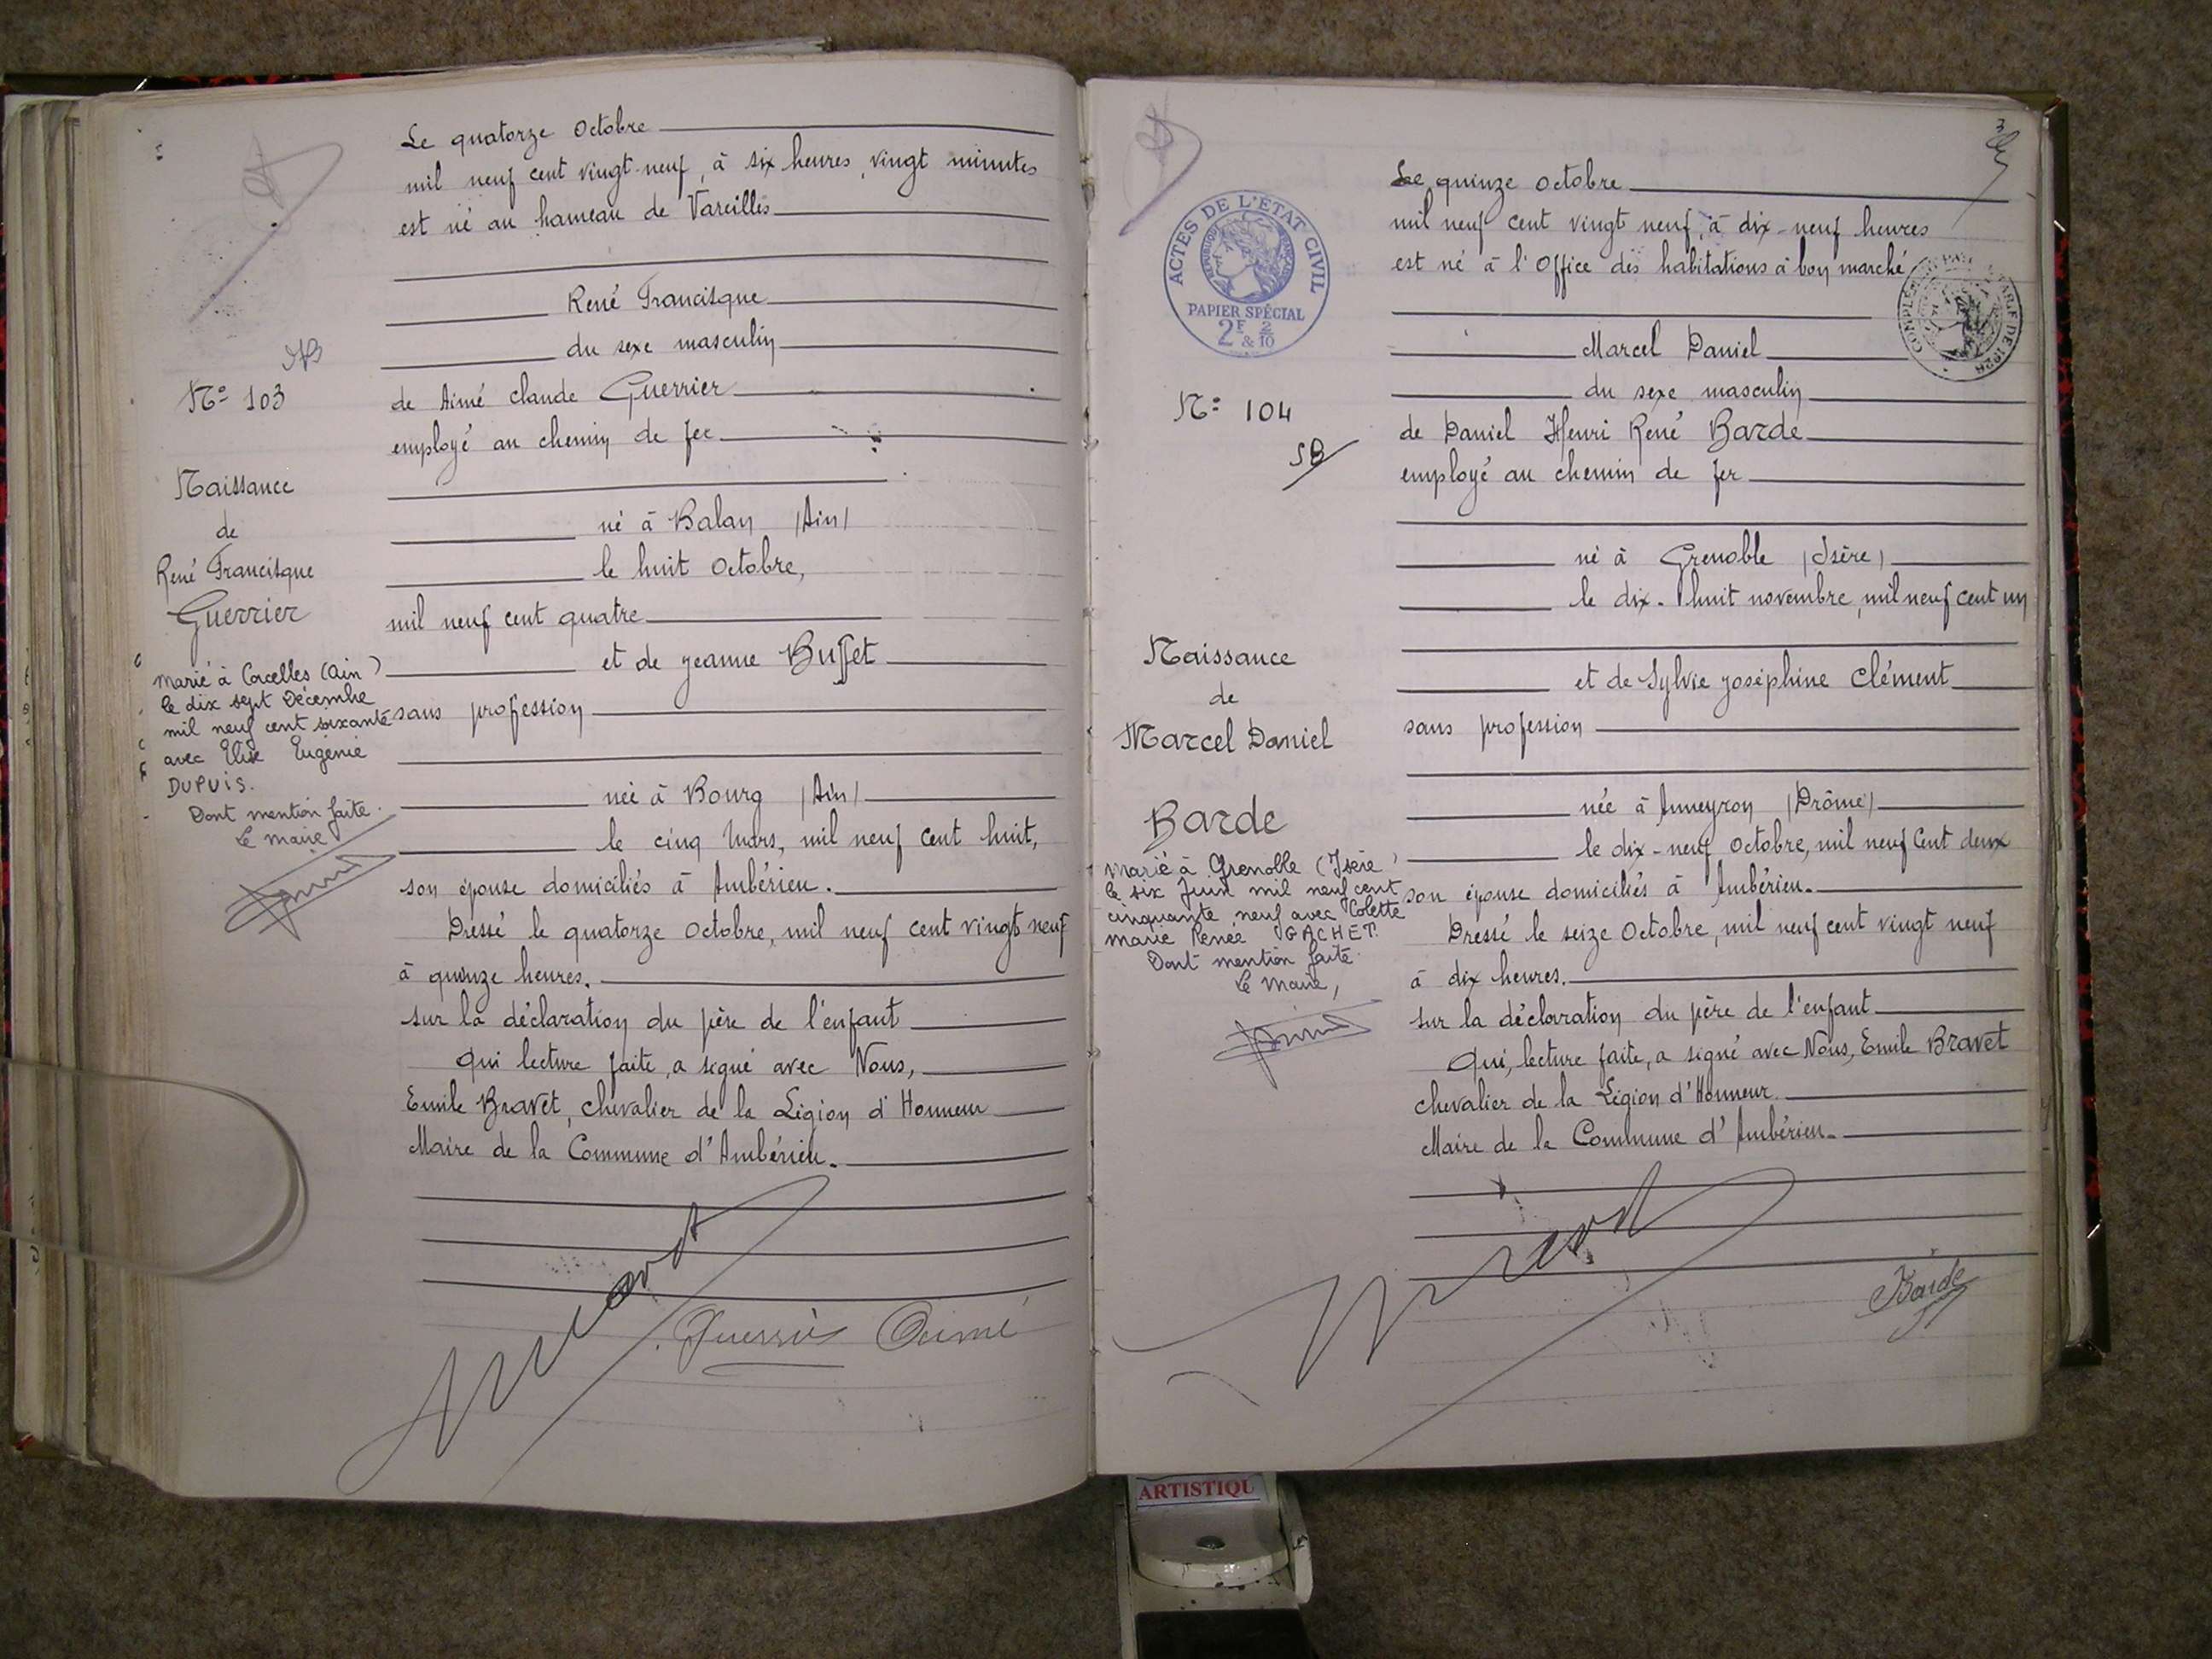 Le quatorze Octobre
mil neuf cent vingt-neuf, à six heures, vingt minutes
est né au hameau de Vareilles
René Francisque
du sexe masculin
N° 103
de Aimé Claude Guerrier
employé au chemin de fer
Naissance
de
René Francisque
Guerrier
né à Balan (Ain)
le huit Octobre,
mil neuf cent quatre
et de Jeanne Buffet
sans profession
née à Bourg (Ain)
le cinq Mars, mil neuf cent huit,
son épouse domiciliés à Ambérieu.
Dressé le quatorze Octobre, mil neuf cent vingt neuf
à quinze heures.
sur la déclaration du père de l'enfant
Qui lecture faite, a signé avec Nous,
Emile Bravet, chevalier de la Légion d'Honneur
Maire de la Commune d'Ambérieu.
Marié à Corcelles (Ain)
le dix sept Décembre
mil neuf cent soixante
avec Elise Eugénie
DUPUIS.
Dont mention faite.
Le Maire
Guerrier Aimé
Le quinze Octobre
mil neuf cent vingt neuf, à dix-neuf heures
est né à l'Office des habitations à bon marché
ACTES DE L'ÉTAT CIVIL
RÉPUBLIQUE FRANÇAISE
PAPIER SPÉCIAL
2F & 2/10
Marcel Daniel
du sexe masculin
N° 104
de Daniel Henri René Barde
employé au chemin de fer
né à Grenoble (Isère)
le dix-huit novembre, mil neuf cent un
Naissance
de
Marcel Daniel
Barde
et de Sylvie Joséphine Clément
sans profession
née à Anneyron (Drôme)
le dix-neuf Octobre, mil neuf cent deux
son épouse domiciliés à Ambérieu.
Dressé le seize Octobre, mil neuf cent vingt neuf
à dix heures.
sur la déclaration du père de l'enfant
Qui, lecture faite, a signé avec Nous, Emile Bravet
chevalier de la Légion d'Honneur.
Maire de la Commune d'Ambérieu.
Marié à Grenoble (Isère)
le six Juin mil neuf cent
cinquante neuf avec Colette
Marie Renée GACHET.
Dont mention faite.
Le Maire,
Barde
ARTISTIQU